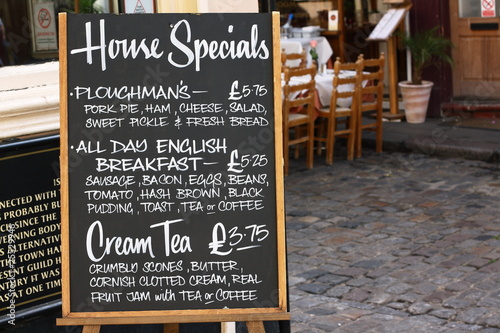 House Specials
· PLOUGHMAN'S — £5·75
PORK PIE, HAM, CHEESE, SALAD,
SWEET PICKLE & FRESH BREAD
· ALL DAY ENGLISH
BREAKFAST — £5·25
SAUSAGE, BACON, EGGS, BEANS,
TOMATO, HASH BROWN, BLACK
PUDDING, TOAST, TEA or COFFEE
Cream Tea £3·75
CRUMBLD SCONES, BUTTER,
CORNISH CLOTTED CREAM, REAL
FRUIT JAM with TEA or COFFEE
NECTED WITH
PROBABLY BU
SINCE THE
VERNING BODY
ALTERNATIV
TOWN HA
ENT GUILD H
TURY IT WAS
ONE TIME